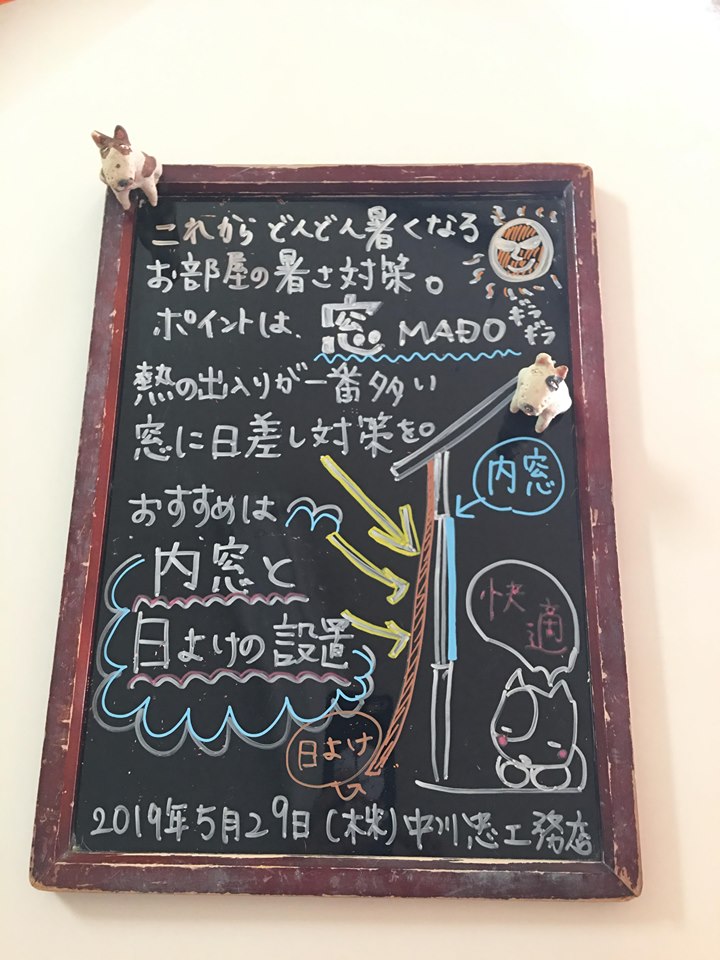 これからどんどん暑くなる
お部屋の暑さ対策。
ポイントは、窓 MADO
ギラギラ
熱の出入りが一番多い
窓に日差し対策を。
内窓
おすすめは
内窓と
日よけの設置
快適
日よけ
2019年5月29日 (株)中川忠工務店